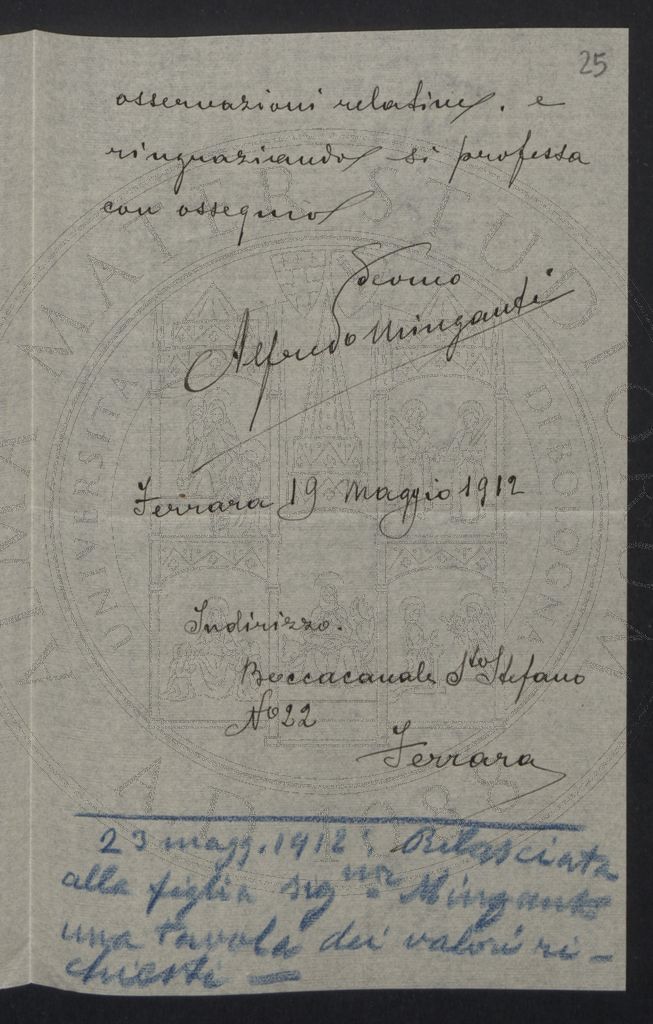 25
osservazioni relative. e
ringraziando si professa
con ossequio
Devmo
Alfredo Minganti
Ferrara 19 Maggio 1912
Indirizzo.
Boccacanale Sto Stefano
No 22
Ferrara
23 magg. 1912: Rilasciata
alla figlia signa Minganti
una tavola dei valori ri-
chiesti —
ALMA MATER STUDIORUM
UNIVERSITA DI BOLOGNA
A.D. 1088